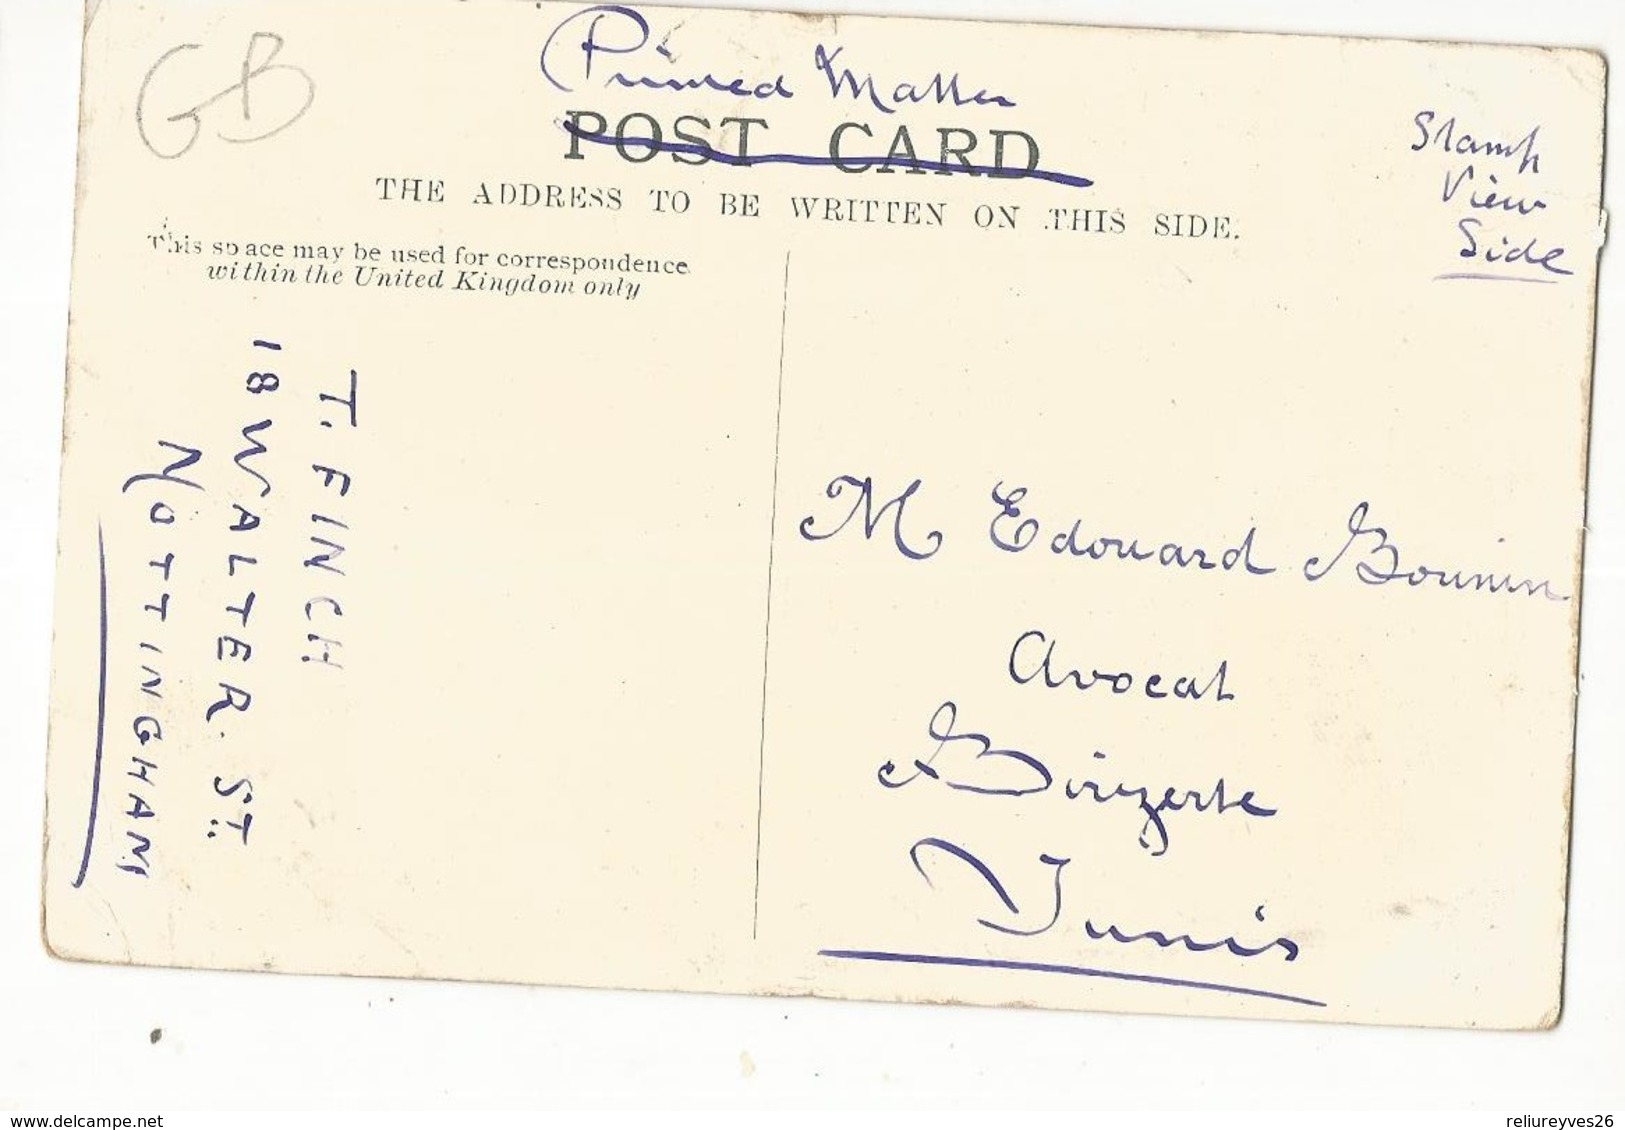 GB
Printed Matter
POST CARD
THE ADDRESS TO BE WRITTEN ON THIS SIDE.
Stamp
View
Side
This space may be used for correspondence
within the United Kingdom only
T. FINCH
18 WALTER. ST.
NOTTINGHAM
M Edouard Bounin
Avocat
Birzerte
Tunis
www.delcampe.net
reliureyves26